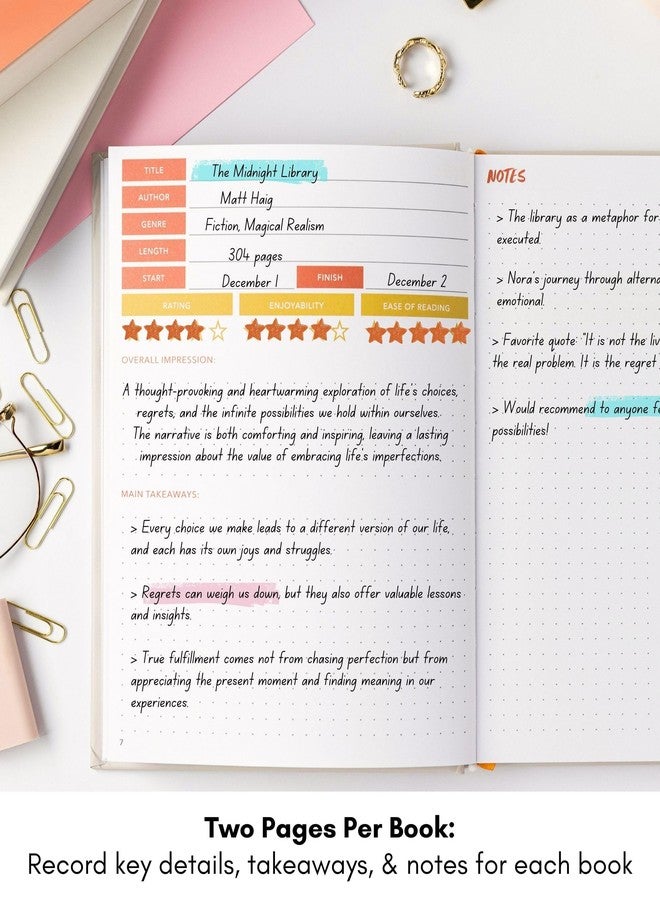 TITLE The Midnight Library
AUTHOR Matt Haig
GENRE Fiction, Magical Realism
LENGTH 304 pages
START December 1 FINISH December 2
RATING ENJOYABILITY EASE OF READING
OVERALL IMPRESSION:
A thought-provoking and heartwarming exploration of life's choices,
regrets, and the infinite possibilities we hold within ourselves.
The narrative is both comforting and inspiring, leaving a lasting
impression about the value of embracing life's imperfections.
MAIN TAKEAWAYS:
> Every choice we make leads to a different version of our life,
and each has its own joys and struggles.
> Regrets can weigh us down, but they also offer valuable lessons
and insights.
> True fulfillment comes not from chasing perfection but from
appreciating the present moment and finding meaning in our
experiences.
7
NOTES
> The library as a metaphor for
executed.
> Nora's journey through
emotional.
> Favorite quote: "It is not the
the real problem. It is the regret
> Would recommend to anyone
possibilities!
Two Pages Per Book:
Record key details, takeaways, & notes for each book